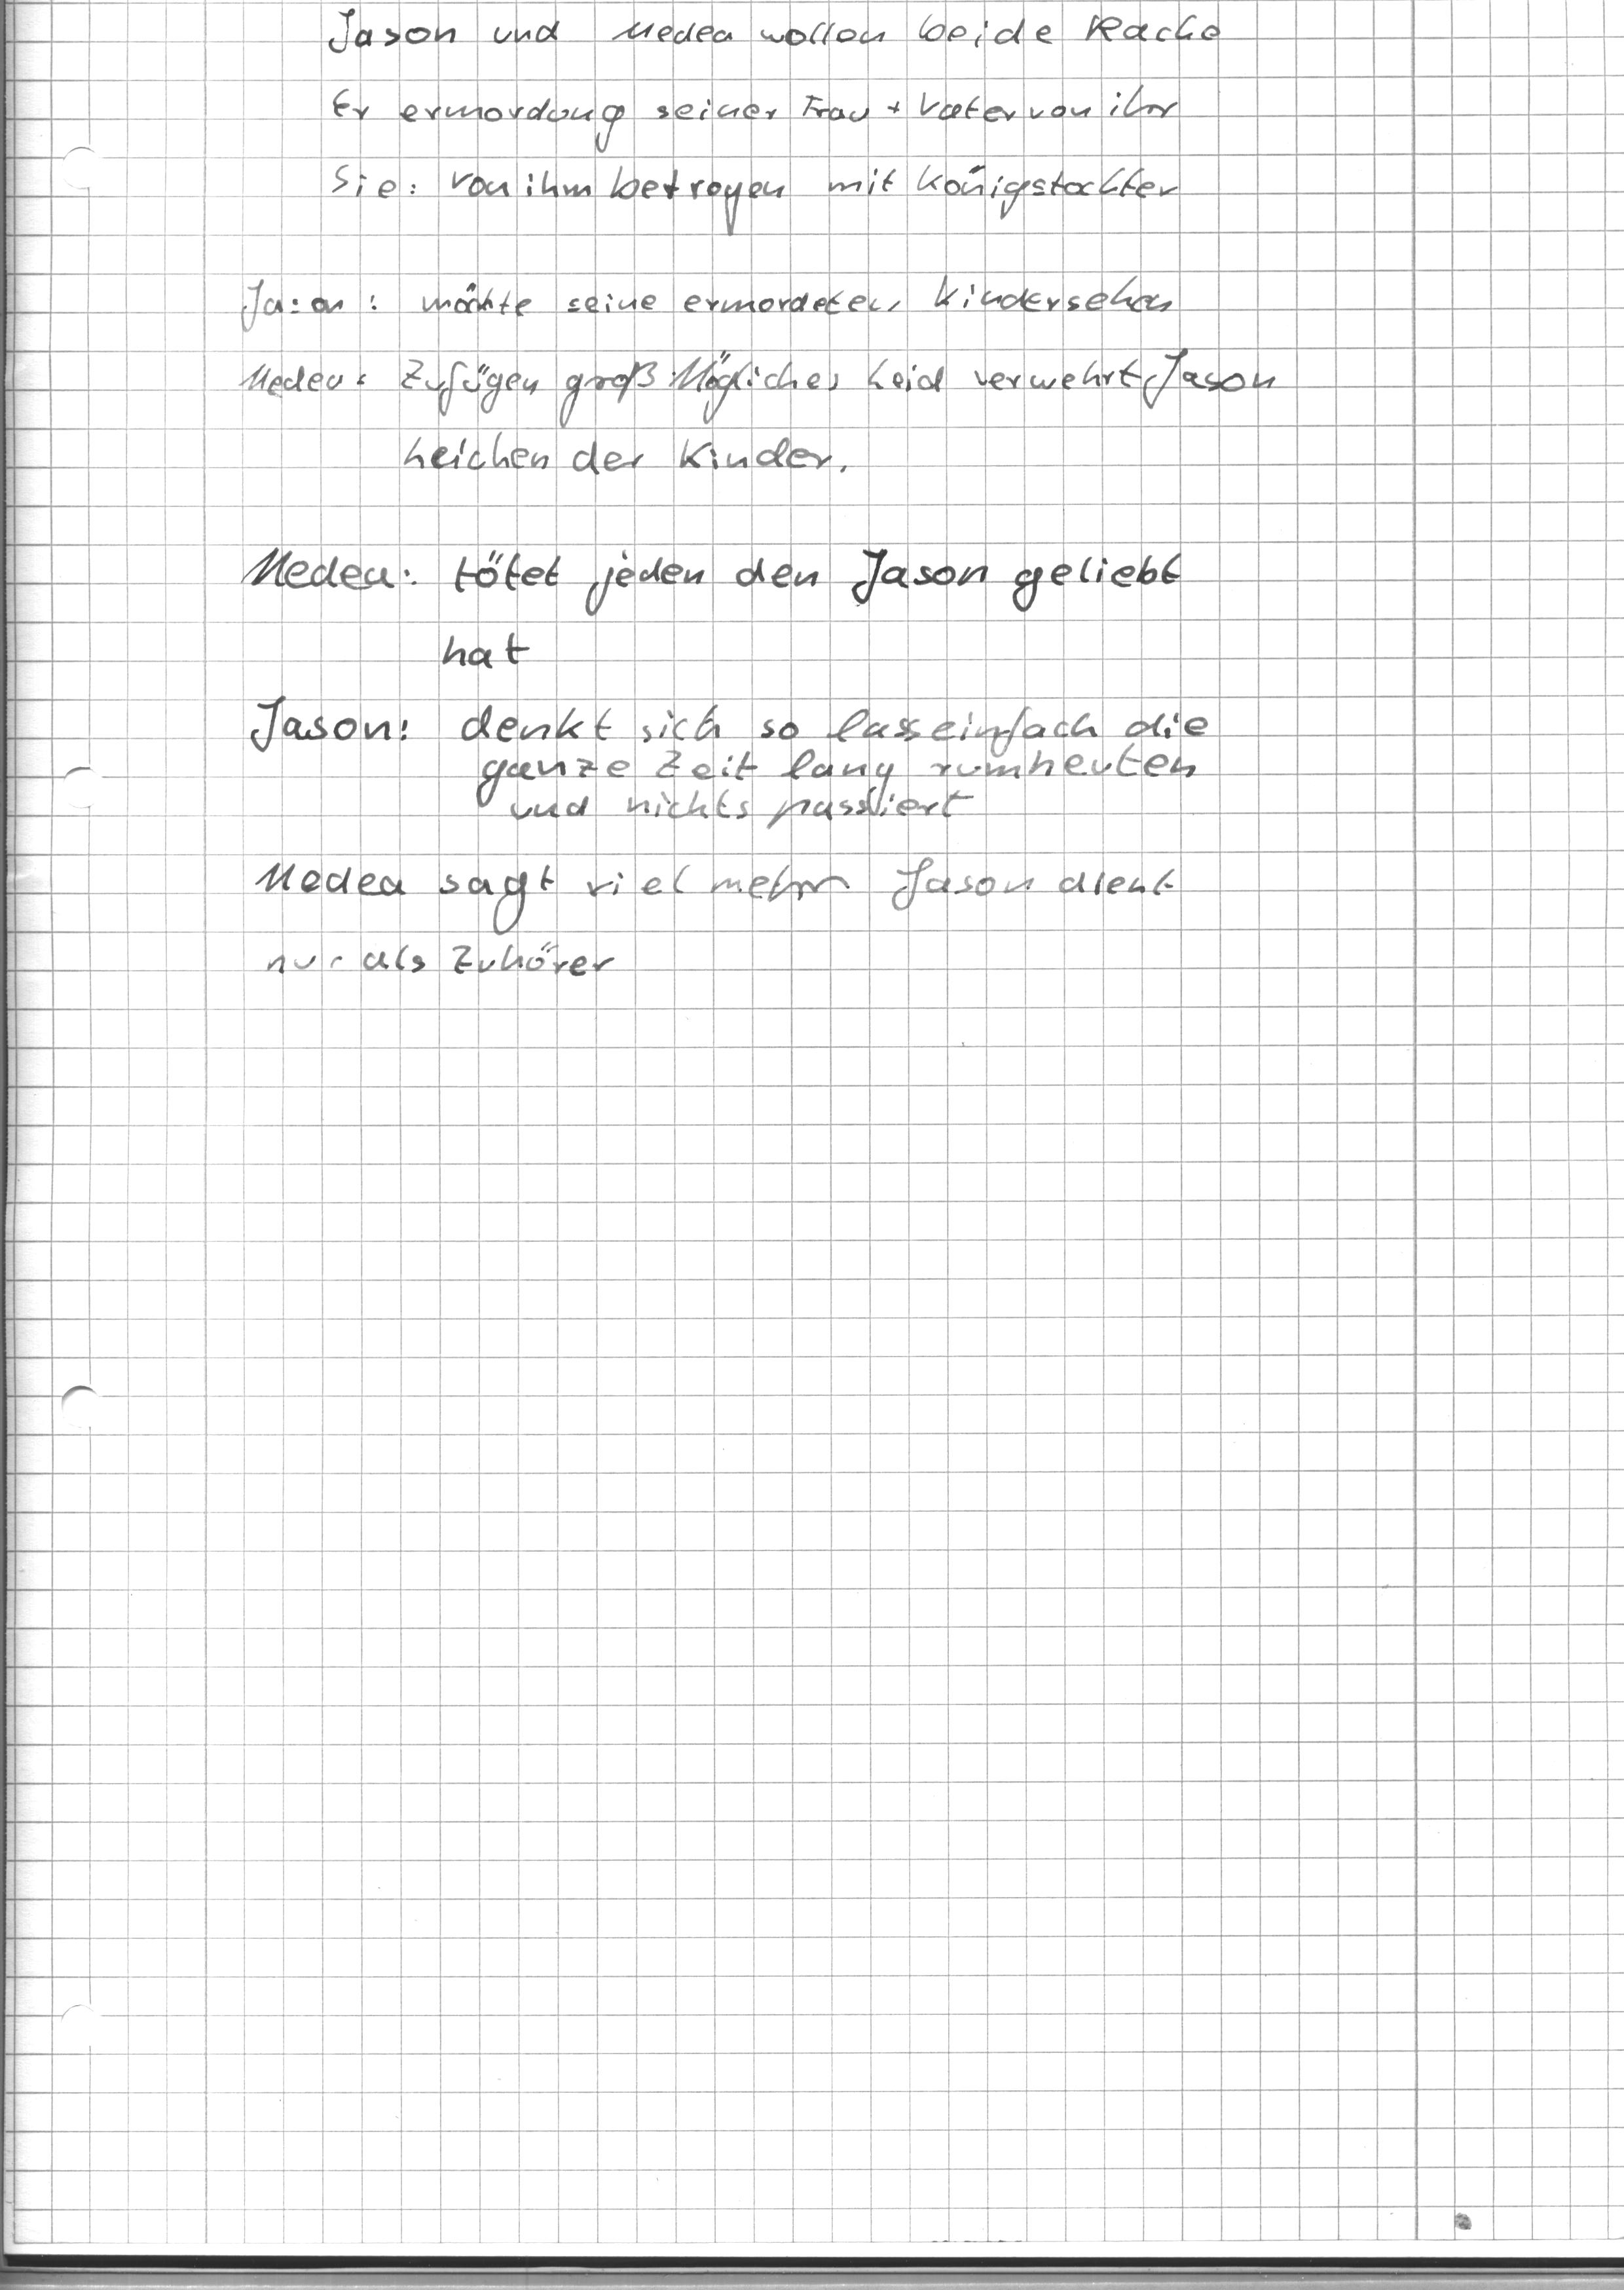 Jason und Medea wollen beide Rache
Er ermordung seiner Frau + Vater von ihr
Sie: von ihm betrogen mit Königstochter
Jason: möchte seine ermordeten Kinder sehen
Medea: Zufügen groß Mögliches Leid verwehrt Jason
Leichen der Kinder.
Medea: tötet jeden den Jason geliebt
hat
Jason: denkt sich so lass einfach die
ganze Zeit lang rumheulen
und nichts passiert
Medea sagt viel mehr Jason dient
nur als Zuhörer